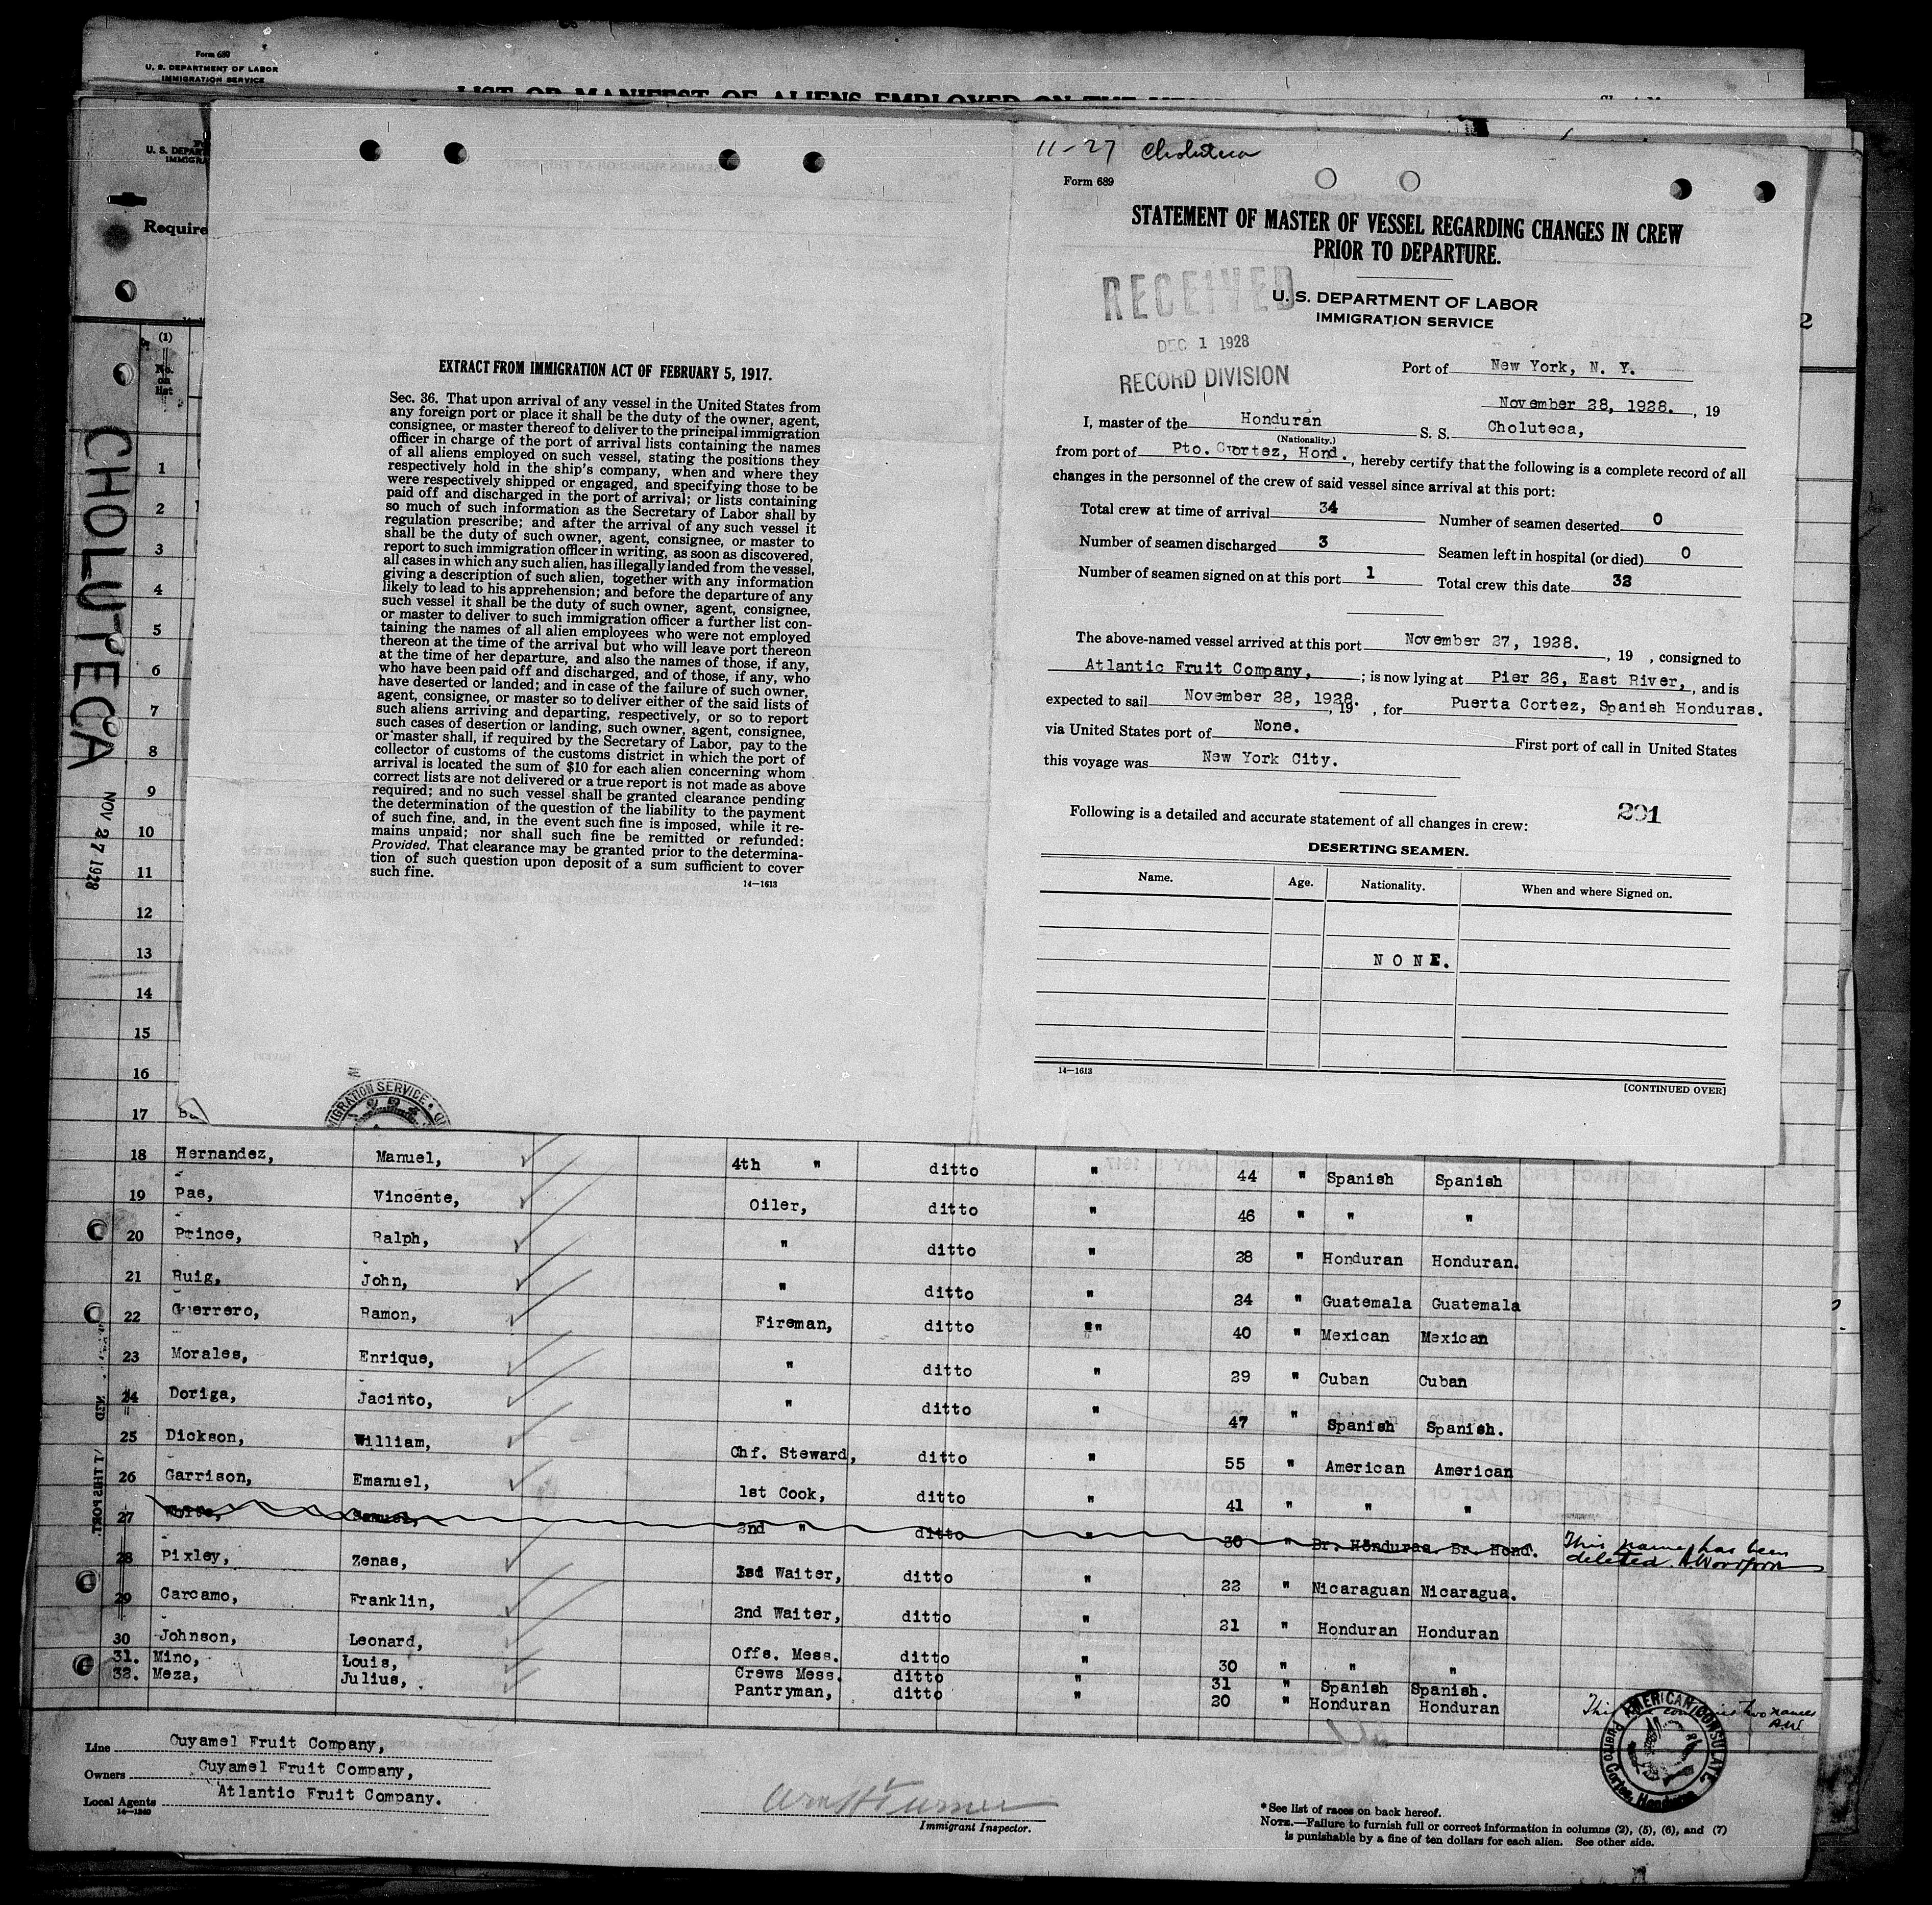 Form 680
U. S. DEPARTMENT OF LABOR
IMMIGRATION SERVICE
LIST OR MANIFEST OF ALIENS EMPLOYED ON THE
U. S. DEPAR
IMMIGRA
Require
(1)
No.
on
list
CHOLUTECA
NOV 27 1928
1
2
3
4
5
6
7
8
9
10
11
12
13
14
15
16
17
EXTRACT FROM IMMIGRATION ACT OF FEBRUARY 5, 1917.
Sec. 36. That upon arrival of any vessel in the United States from
any foreign port or place it shall be the duty of the owner, agent,
consignee, or master thereof to deliver to the principal immigration
officer in charge of the port of arrival lists containing the names
of all aliens employed on such vessel, stating the positions they
respectively hold in the ship's company, when and where they
were respectively shipped or engaged, and specifying those to be
paid off and discharged in the port of arrival; or lists containing
so much of such information as the Secretary of Labor shall by
regulation prescribe; and after the arrival of any such vessel it
shall be the duty of such owner, agent, consignee, or master to
report to such immigration officer in writing, as soon as discovered,
all cases in which any such alien, has illegally landed from the vessel,
giving a description of such alien, together with any information
likely to lead to his apprehension; and before the departure of any
such vessel it shall be the duty of such owner, agent, consignee,
or master to deliver to such immigration officer a further list con-
taining the names of all alien employees who were not employed
thereon at the time of the arrival but who will leave port thereon
at the time of her departure, and also the names of those, if any,
who have been paid off and discharged, and of those, if any, who
have deserted or landed; and in case of the failure of such owner,
agent, consignee, or master so to deliver either of the said lists of
such aliens arriving and departing, respectively, or so to report
such cases of desertion or landing, such owner, agent, consignee,
or master shall, if required by the Secretary of Labor, pay to the
collector of customs of the customs district in which the port of
arrival is located the sum of $10 for each alien concerning whom
correct lists are not delivered or a true report is not made as above
required; and no such vessel shall be granted clearance pending
the determination of the question of the liability to the payment
of such fine, and, in the event such fine is imposed, while it re-
mains unpaid; nor shall such fine be remitted or refunded:
Provided, That clearance may be granted prior to the determina-
tion of such question upon deposit of a sum sufficient to cover
such fine.
14—1613
11-27 Choluteca
Form 689
STATEMENT OF MASTER OF VESSEL REGARDING CHANGES IN CREW
PRIOR TO DEPARTURE.
RECEIVED
DEC 1 1928
RECORD DIVISION
U. S. DEPARTMENT OF LABOR
IMMIGRATION SERVICE
Port of New York, N. Y.
November 28, 1928. , 19
I, master of the Honduran S. S. Choluteca,
(Nationality.)
from port of Pto. Cortez, Hond. , hereby certify that the following is a complete record of all
changes in the personnel of the crew of said vessel since arrival at this port:
Total crew at time of arrival 34 Number of seamen deserted 0
Number of seamen discharged 3 Seamen left in hospital (or died) 0
Number of seamen signed on at this port 1 Total crew this date 32
The above-named vessel arrived at this port November 27, 1928. , 19 , consigned to
Atlantic Fruit Company, ; is now lying at Pier 26, East River, , and is
expected to sail November 28, 1928. , 19 , for Puerta Cortez, Spanish Honduras.
via United States port of None. First port of call in United States
this voyage was New York City.
291
Following is a detailed and accurate statement of all changes in crew:
DESERTING SEAMEN.
Name. Age. Nationality. When and where Signed on.
NONE.
14—1613
[CONTINUED OVER]
IGRATION SERVICE
18 Hernandez, Manuel, 4th " ditto " 44 " Spanish Spanish
19 Pas, Vincente, Oiler, ditto " 46 " " "
20 Prince, Ralph, " ditto " 28 " Honduran Honduran.
21 Ruig, John, " ditto " 24 " Guatemala Guatemala
22 Guerrero, Ramon, Fireman, ditto "" 40 " Mexican Mexican
23 Morales, Enrique, " ditto " 29 " Cuban Cuban
24 Doriga, Jacinto, " ditto " 47 " Spanish Spanish.
25 Dickson, William, Chf. Steward, ditto " 55 " American American
26 Garrison, Emanuel, 1st Cook, ditto " 41 " " "
27 White, Samuel, 2nd " ditto " 30 " Br. Honduras. Br. Hond. This name has been
deleted.
28 Pixley, Zenas, Waiter, ditto " 22 " Nicaraguan Nicaragua.
29 Carcamo, Franklin, 2nd Waiter, ditto " 21 " Honduran Honduran
30 Johnson, Leonard, Offs. Mess. ditto " 30 " " "
31. Mino, Louis, Crews Mess. ditto " 31 " Spanish Spanish.
32. Meza, Julius, Pantryman, ditto " 20 " Honduran Honduran
AMERICAN CONSULATE
Puerto Cortes, Honduras
Line Cuyamel Fruit Company,
Owners Cuyamel Fruit Company,
Local Agents Atlantic Fruit Company.
14—1240
Immigrant Inspector.
*See list of races on back hereof.
NOTE.—Failure to furnish full or correct information in columns (2), (5), (6), and (7)
is punishable by a fine of ten dollars for each alien. See other side.